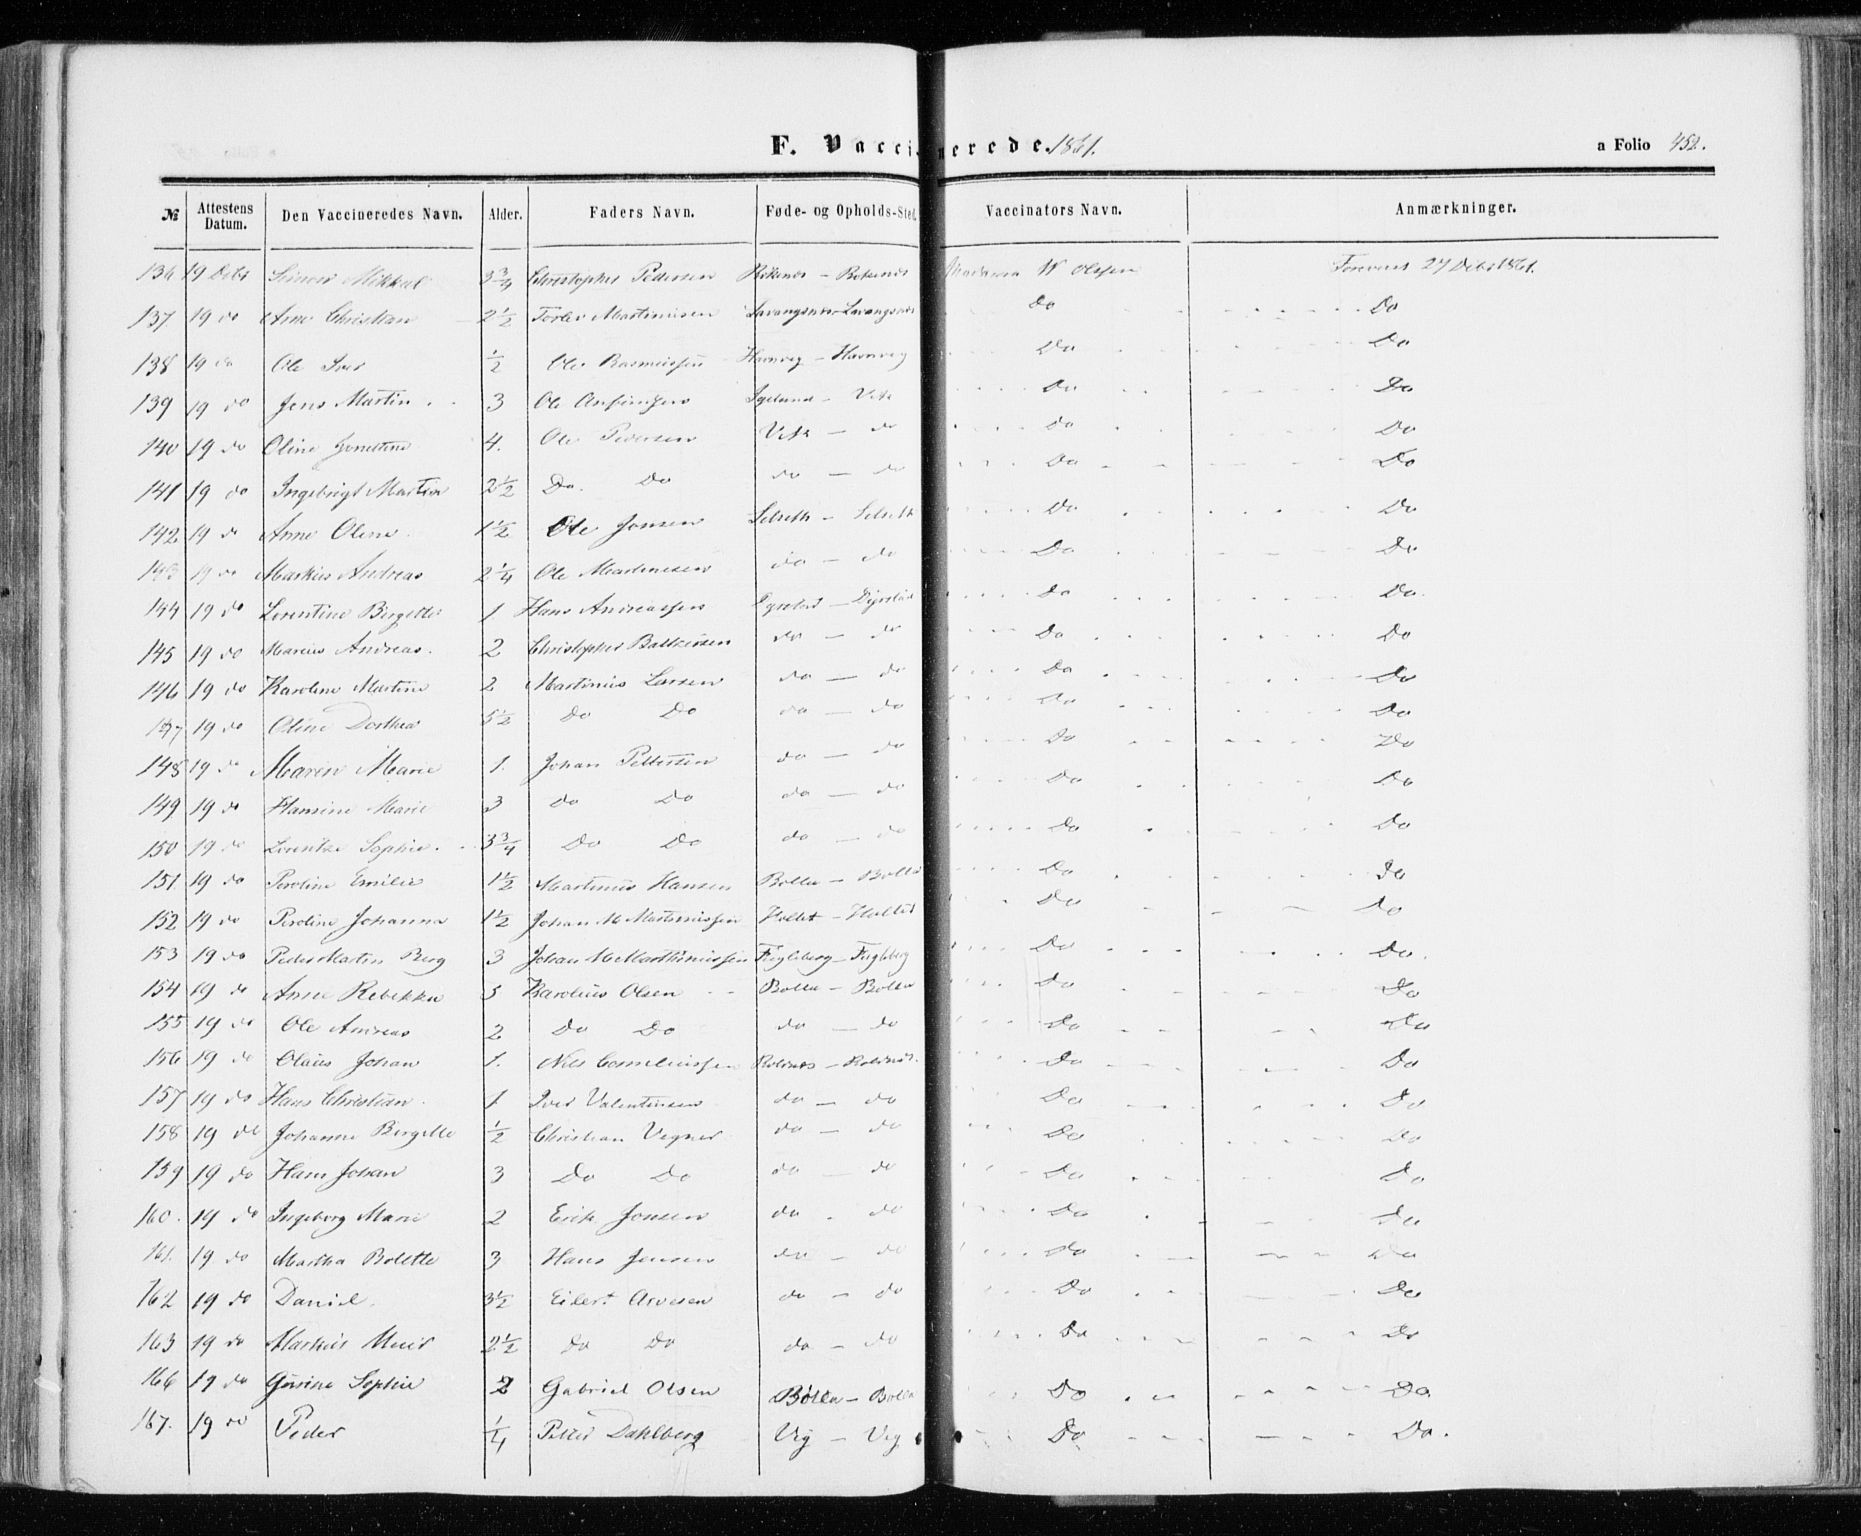 F. Vaccinerede. 1861. a Folio 452.
№ Attestens Datum. Den Vaccineredes Navn. Alder. Faders Navn. Føde- og Opholds-Sted. Vaccinators Navn. Anmærkninger.
136 19 Mikkal 3 3/4 Christopher Pedersen W Olsen 27 1861.
137 19 do Arne Christian 2 1/2 Martinusen Lavangsnes - Lavangsnes Do Do
138 19 do Ole 1/2 Ole Rasmussen Havnvig - Havnvig Do Do
139 19 do Jens Martin 3 Ole Vik Do Do
140 19 do Oline 4. Ole Pedersen Vik - do Do Do
141 19 do Ingebrigt Martin 2 1/2 Do. Do do - do Do Do
142 19 do Anne Oline 1 1/2 Ole Jonsen Selseth - Selseth Do Do
143 19 do Markus Andreas 2 1/4 Ole Martinesen do - do Do Do
144 19 do Lorentine Birgitte 1 Hans Andreassen Dyrstad - Dyrstad Do Do.
145 19 do Marius Andreas. 2 Christopher Baltzersen do - do Do Do
146 19 do Karoline Martine 2 Martinus Larsen do - do Do Do
147 19 do Oline Dorthea 5 1/2 Do Do do - do Do Do
148 19 do Maren Marie 1. Johan Pettersen do - do Do Do
149 19 do Hansine Marie 3 Do Do do - do Do Do
150 19 do Lorentze Sophie. 3 3/4 Do Do do - do Do Do
151 19 do Peroline Emilie 1 1/2 Martinus Hansen Bolla - Bolla Do Do
152 19 do Peroline Johanna 1 1/2 Johan M Martinussen Do Do
153 19 do Peder Martin Berg 3 Johan M Marthinussen Fugleberg - Fugleberg Do Do.
154 19 do Anne Rebekka 5 Karolius Olsen Bolla - Bolla Do Do
155 19 do Ole Andreas 2 Do Do do - do Do Do
156 19 do Olaus Johan 1. Nils Corneliussen Do Do
157 19 do Hans Christian. 1 Iver Valentinsen do - do Do Do
158 19 do Johanne Birgitte 1/2 Christian Vegner do - do Do Do
159 19 do Hans Johan 3 Do Do do - do Do Do
160. 19 do Ingeborg Marie 2 Erik Jonsen do - do Do Do
161. 19 do Martha Bolette 3 Hans Jensen do - do Do Do
162 19 do Daniel. 3 1/2 Eilert Arvesen do - do Do Do
163 19 do Markus 2 1/2 Do Do do - do Do Do
166 19 do Gurine Sophie 2 Gabriel Olsen Bolla - Bolla Do Do
167. 19 do Peder 1/4 Petter Dahlberg Vig - Vig Do Do.